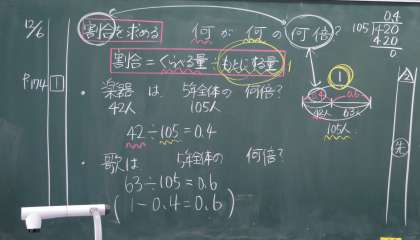 12/6
P174 1
割合を求める 何が何の何倍?
割合=くらべる量÷もとにする量
・楽器は 5年全体の 何倍?
42人 105人
42÷105=0.4
・歌は 5年全体の 何倍?
63÷105=0.6
(1-0.4=0.6)
04
105)420
420
0
1
0.4 0.6
42人 63人
105人
先